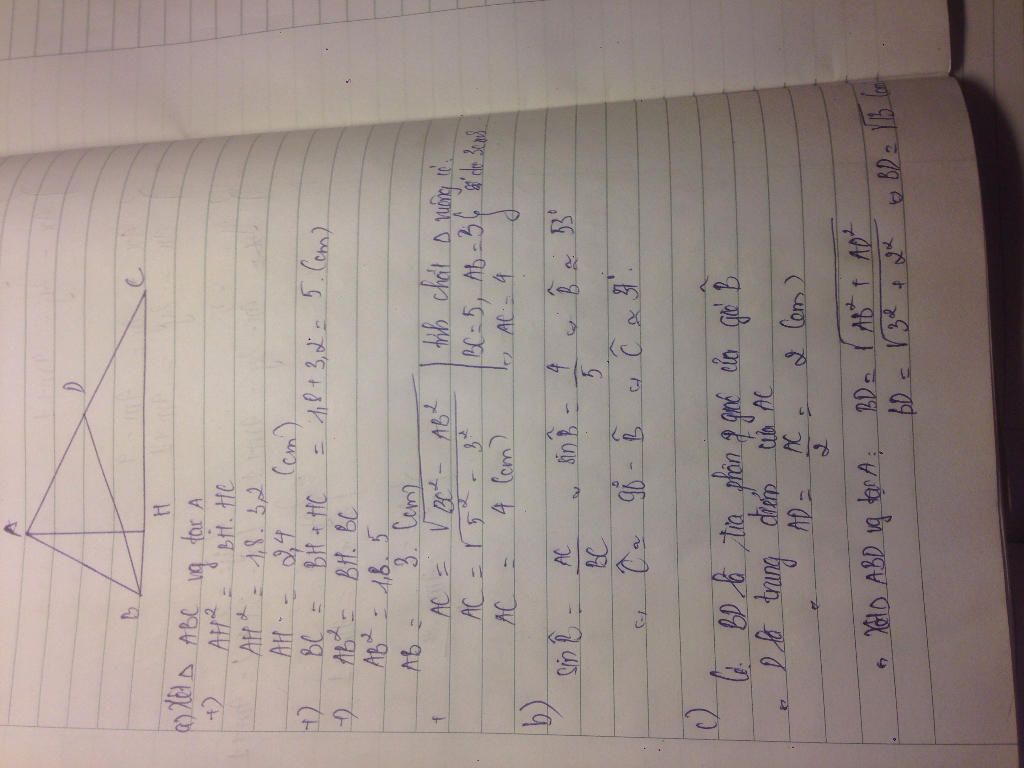 A
D
B
H
C
a) Xét Δ ABC vg tại A
+) AH² = BH. HC
AH² = 1,8. 3,2
AH = 2,4 (cm)
+) BC = BH + HC = 1,8 + 3,2 = 5 (cm)
+) AB² = BH. BC
AB² = 1,8. 5
AB = 3 (cm)
+ AC = √BC² - AB²
AC = √5² - 3²
AC = 4 (cm)
tính chất Δ vuông
BC = 5, AB = 3
AC = 4
b) sin B̂ = AC/BC sin B̂ = 4/5 B̂ ≈ 53°
Ĉ ≈ 90° - B̂ Ĉ ≈ 37°.
c) Có: BD là tia phân g giác của góc B̂
D là trung điểm của AC
AD = AC/2 = 2 (cm)
Xét Δ ABD vg tại A: BD = √AB² + AD²
BD = √3² + 2² BD = √13 cm